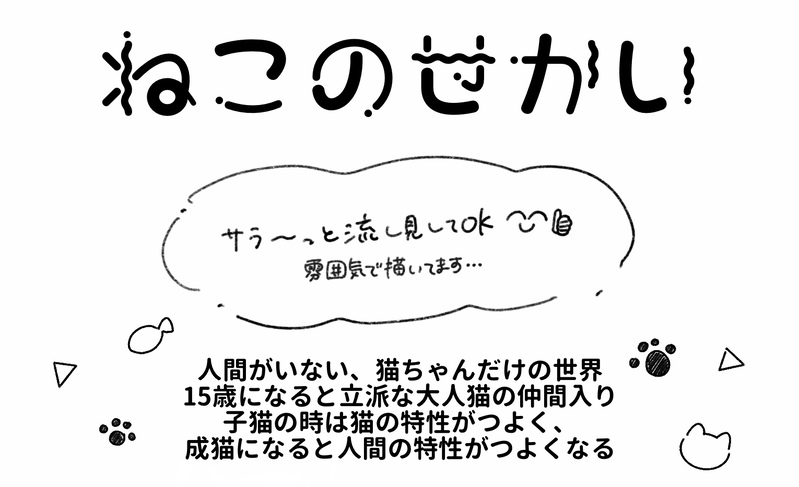 ねこのせかい
サラ〜っと流し見してOK
雰囲気で描いてます…
人間がいない、猫ちゃんだけの世界
15歳になると立派な大人猫の仲間入り
子猫の時は猫の特性がつよく、
成猫になると人間の特性がつよくなる